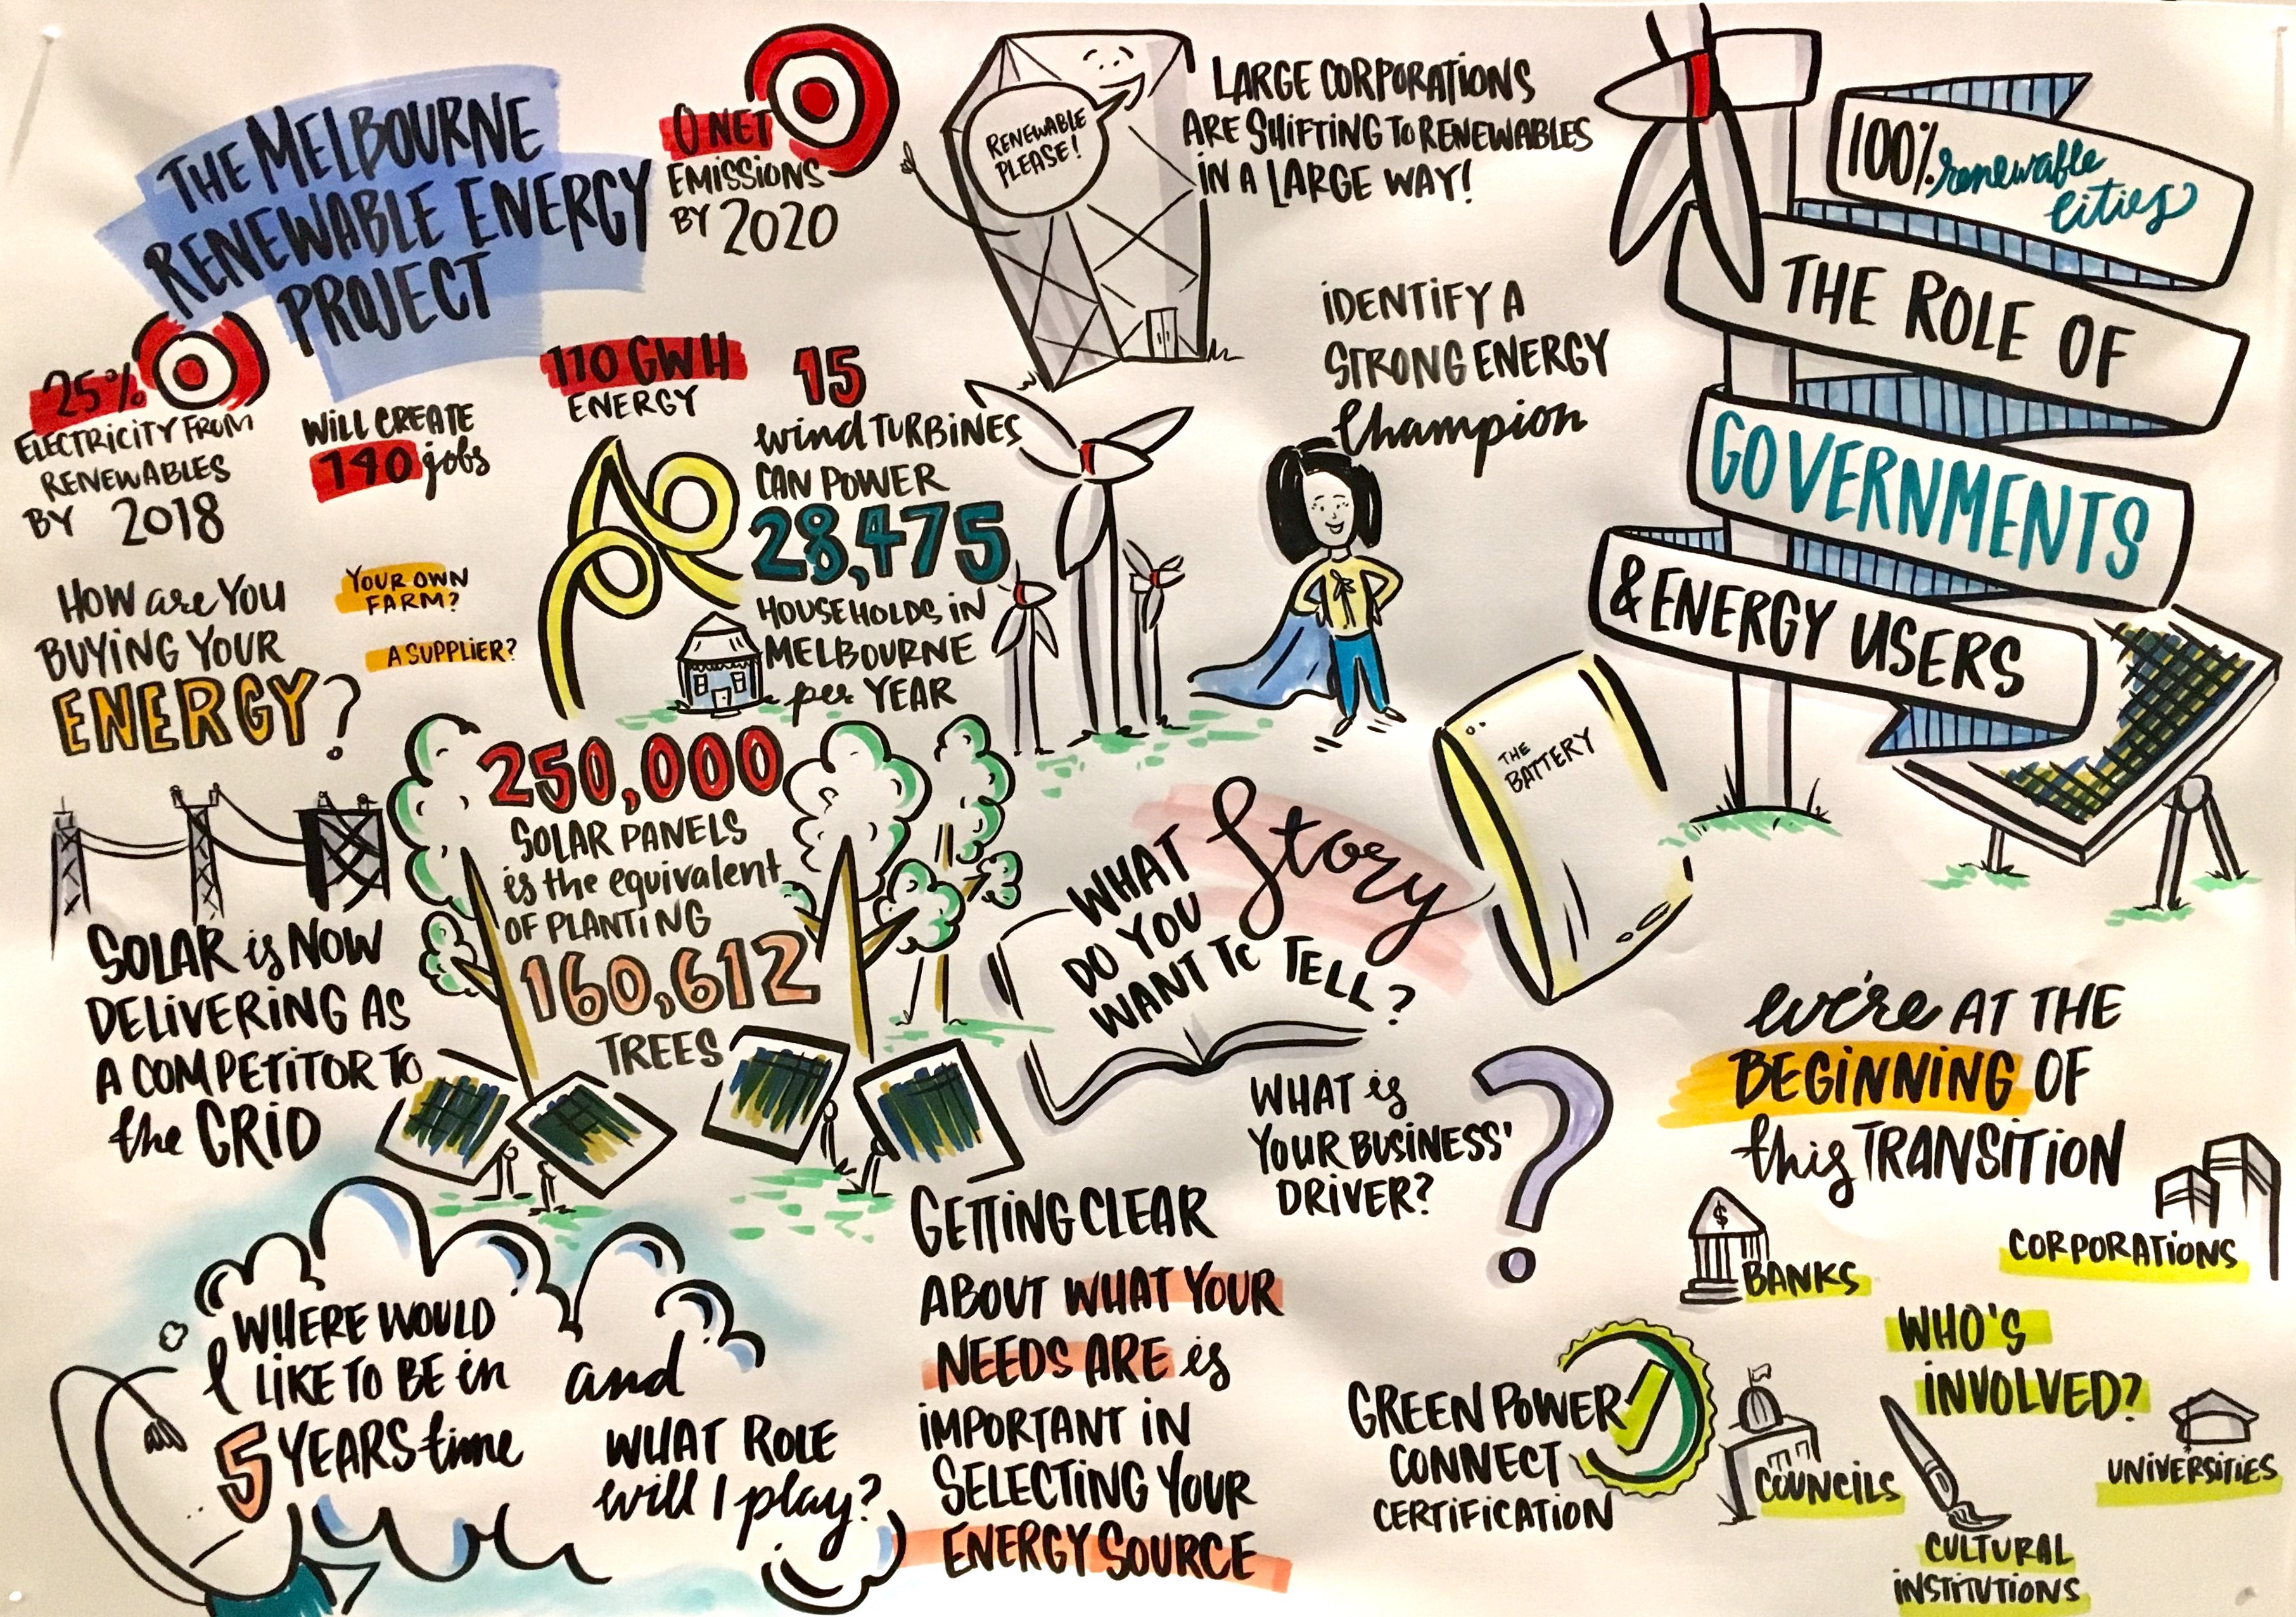 THE MELBOURNE
RENEWABLE ENERGY
PROJECT
0 NET
EMISSIONS
BY 2020
RENEWABLE
PLEASE!
LARGE CORPORATIONS
ARE SHIFTING TO RENEWABLES
IN A LARGE WAY!
100% renewable
cities
THE ROLE OF
GOVERNMENTS
& ENERGY USERS
25%
ELECTRICITY FROM
RENEWABLES
BY 2018
WILL CREATE
140 jobs
110 GWH
ENERGY
15
wind TURBINES
CAN POWER
28,475
HOUSEHOLDS IN
MELBOURNE
per YEAR
IDENTIFY A
STRONG ENERGY
Champion
HOW are YOU
BUYING YOUR
ENERGY?
YOUR OWN
FARM?
A SUPPLIER?
250,000
SOLAR PANELS
is the equivalent
OF PLANTING
160,612
TREES
THE
BATTERY
WHAT Story
DO YOU
WANT TO TELL?
SOLAR is NOW
DELIVERING AS
A COMPETITOR TO
the GRID
WHAT is
YOUR BUSINESS'
DRIVER?
?
We're AT THE
BEGINNING OF
this TRANSITION
WHERE WOULD
I LIKE TO BE in
5 YEARS time
and
WHAT ROLE
will I play?
GETTING CLEAR
ABOUT WHAT YOUR
NEEDS ARE is
IMPORTANT IN
SELECTING YOUR
ENERGY SOURCE
GREEN POWER
CONNECT
CERTIFICATION
$
BANKS
CORPORATIONS
WHO'S
INVOLVED?
COUNCILS
UNIVERSITIES
CULTURAL
INSTITUTIONS